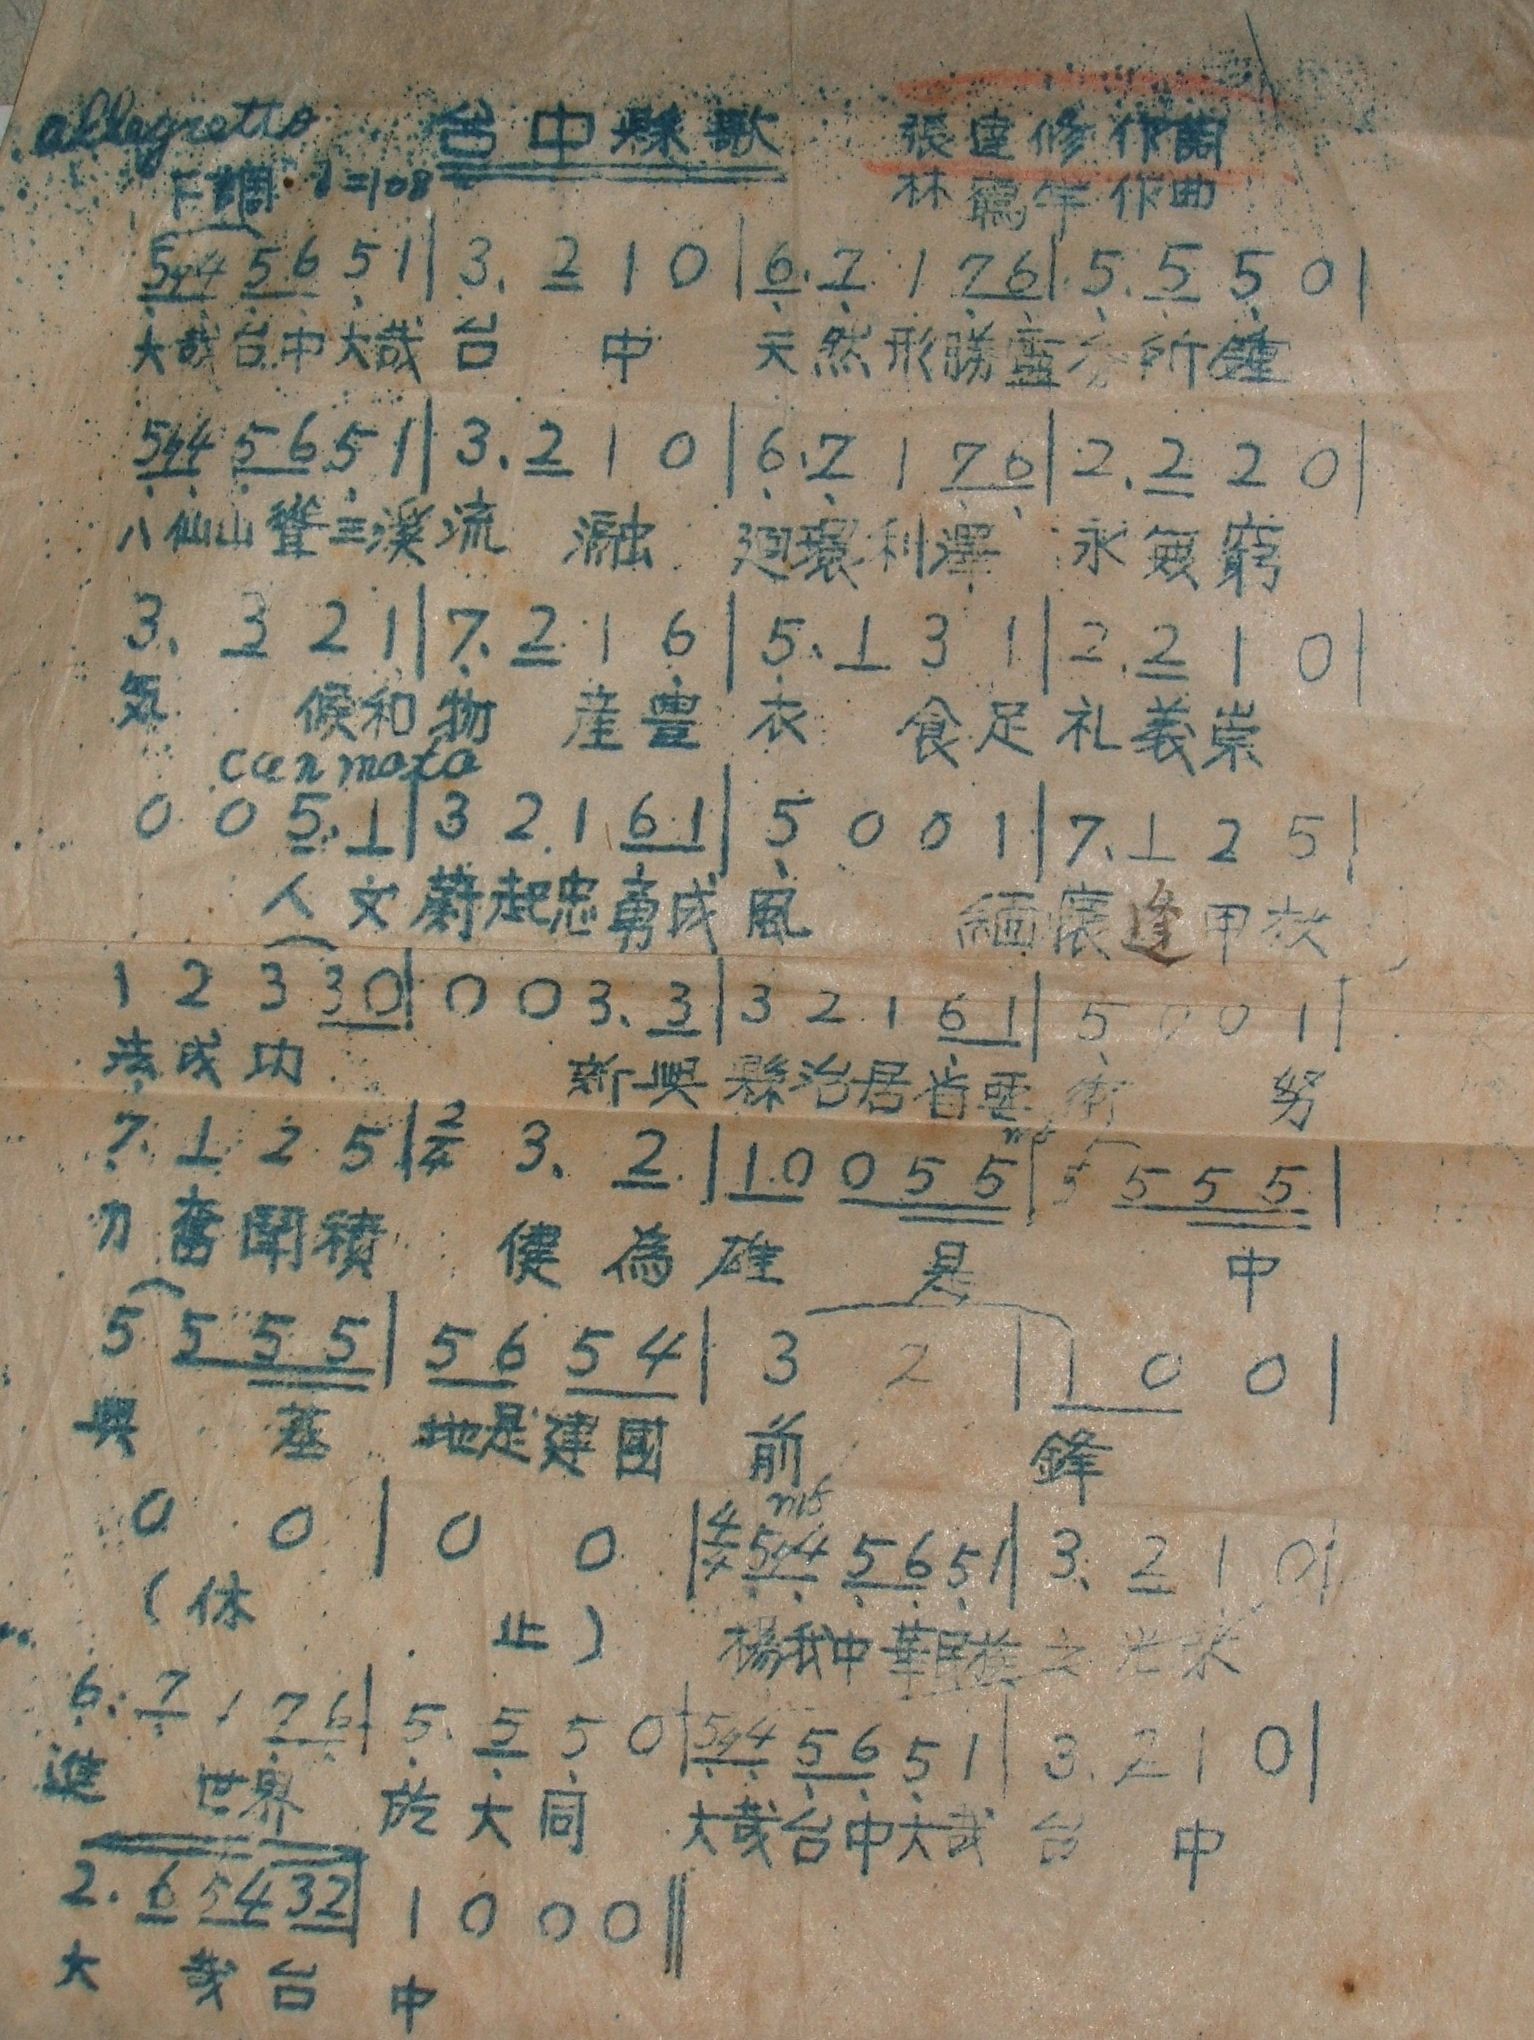 allegretto 台中縣歌 張達修作詞
F調 ♩=108 林鶴年作曲
5 4 4 5 6 5 1 | 3. 2 1 0 | 6. 7 1 7 6 | 5. 5 5 0 |
大哉台中大哉台中 天然形勝靈秀所鍾
5 4 4 5 6 5 1 | 3. 2 1 0 | 6. 7 1 7 6 | 2. 2 2 0 |
八仙山聳三溪流瀜 廻環利澤永無窮
3. 3 2 1 | 7. 2 1 6 | 5. 1 3 1 | 2. 2 1 0 |
気候和物産豊衣食足礼義崇
con moto
0 0 5. 1 | 3 2 1 6 1 | 5 0 0 1 | 7. 1 2 5 |
人文蔚起忠勇成風 緬懷逢甲
1 2 3 3 0 | 0 0 3. 3 | 3 2 1 6 1 | 5 0 0 1 |
法成功 新興縣治居省要衝 努
7. 1 2 5 | 2/4 3. 2 | 1 0 0 5 5 | 5 5 5 5 |
力奮鬪積健為雄 是中
5 5 5 5 | 5 6 5 4 | 3 2 | 1 0 0 |
興基地是建國前鋒
0 0 | 0 0 | 4/4 mf 5 4 4 5 6 5 1 | 3. 2 1 0 |
(休止) 楊我中華民族之光榮
6. 7 1 7 6 | 5. 5 5 0 | 5 4 4 5 6 5 1 | 3. 2 1 0 |
進世界於大同 大哉台中大哉台中
2. 6 5 4 3 2 | 1 0 0 0 ‖
大哉台中